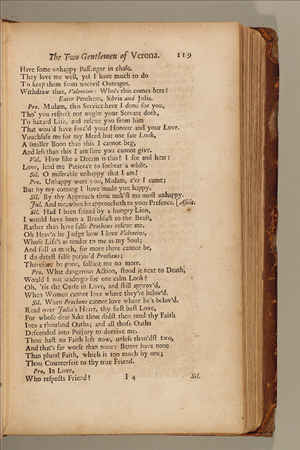 The Two Gentlemen of Verona. 119
Have some unhappy Passenger in chase.
They love me well, yet I have much to do
To keep them from uncivil Outrages.
Withdraw thee, Valentine: Who's this comes here?
Enter Protheus, Silvia and Julia.
Pro. Madam, this Service have I done for you,
Tho' you respect not ought your Servant doth,
To hazard Life, and rescue you from him
That wou'd have forc'd your Honour and your Love.
Vouchsafe me for my Meed but one fair Look,
A smaller Boon than this I cannot beg,
And less than this I am sure you cannot give.
Val. How like a Dream is this? I see and hear:
Love, lend me Patience to forbear a while.
Sil. O miserable unhappy that I am!
Pro. Unhappy were you, Madam, e'er I came;
But by my coming I have made you happy.
Sil. By thy Approach thou mak'st me most unhappy.
Jul. And me, when he approacheth to your Presence. [Aside.
Sil. Had I been seized by a hungry Lion,
I would have been a Breakfast to the Beast,
Rather than have false Protheus rescue me.
Oh Heav'n be Judge how I love Valentine,
Whose Life's as tender to me as my Soul;
And full as much, for more there cannot be,
I do detest false perjur'd Protheus;
Therefore be gone, sollicit me no more.
Pro. What dangerous Action, stood it next to Death,
Would I not undergo for one calm Look?
Oh, 'tis the Curse in Love, and still approv'd,
When Women cannot love where they're belov'd.
Sil. When Protheus cannot love where he's belov'd.
Read over Julia's Heart, thy first best Love,
For whose dear Sake thou didst then rend thy Faith
Into a thousand Oaths; and all those Oaths
Descended into Perjury to deceive me.
Thou hast no Faith left now, unless thou'dst two,
And that's far worse than none: Better have none
Than plural Faith, which is too much by one;
Thou Counterfeit to thy true Friend.
Pro. In Love,
Who respects Friend?
I 4 Sil.